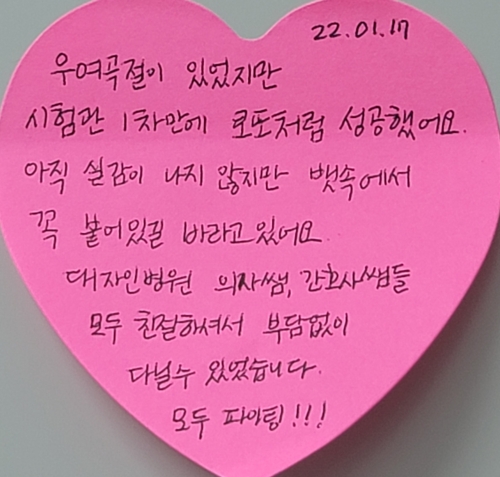 22.01.17
우여곡절이 있었지만
시험관 1차만에 로또처럼 성공했어요.
아직 실감이 나지 않지만 뱃속에서
꼭 붙어있길 바라고있어요.
대자인병원 의사쌤, 간호사쌤들
모두 친절하셔서 부담없이
다닐수 있었습니다.
모두 파이팅!!!